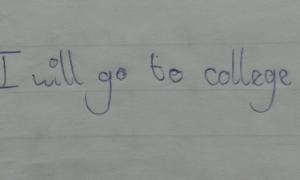 I will go to college